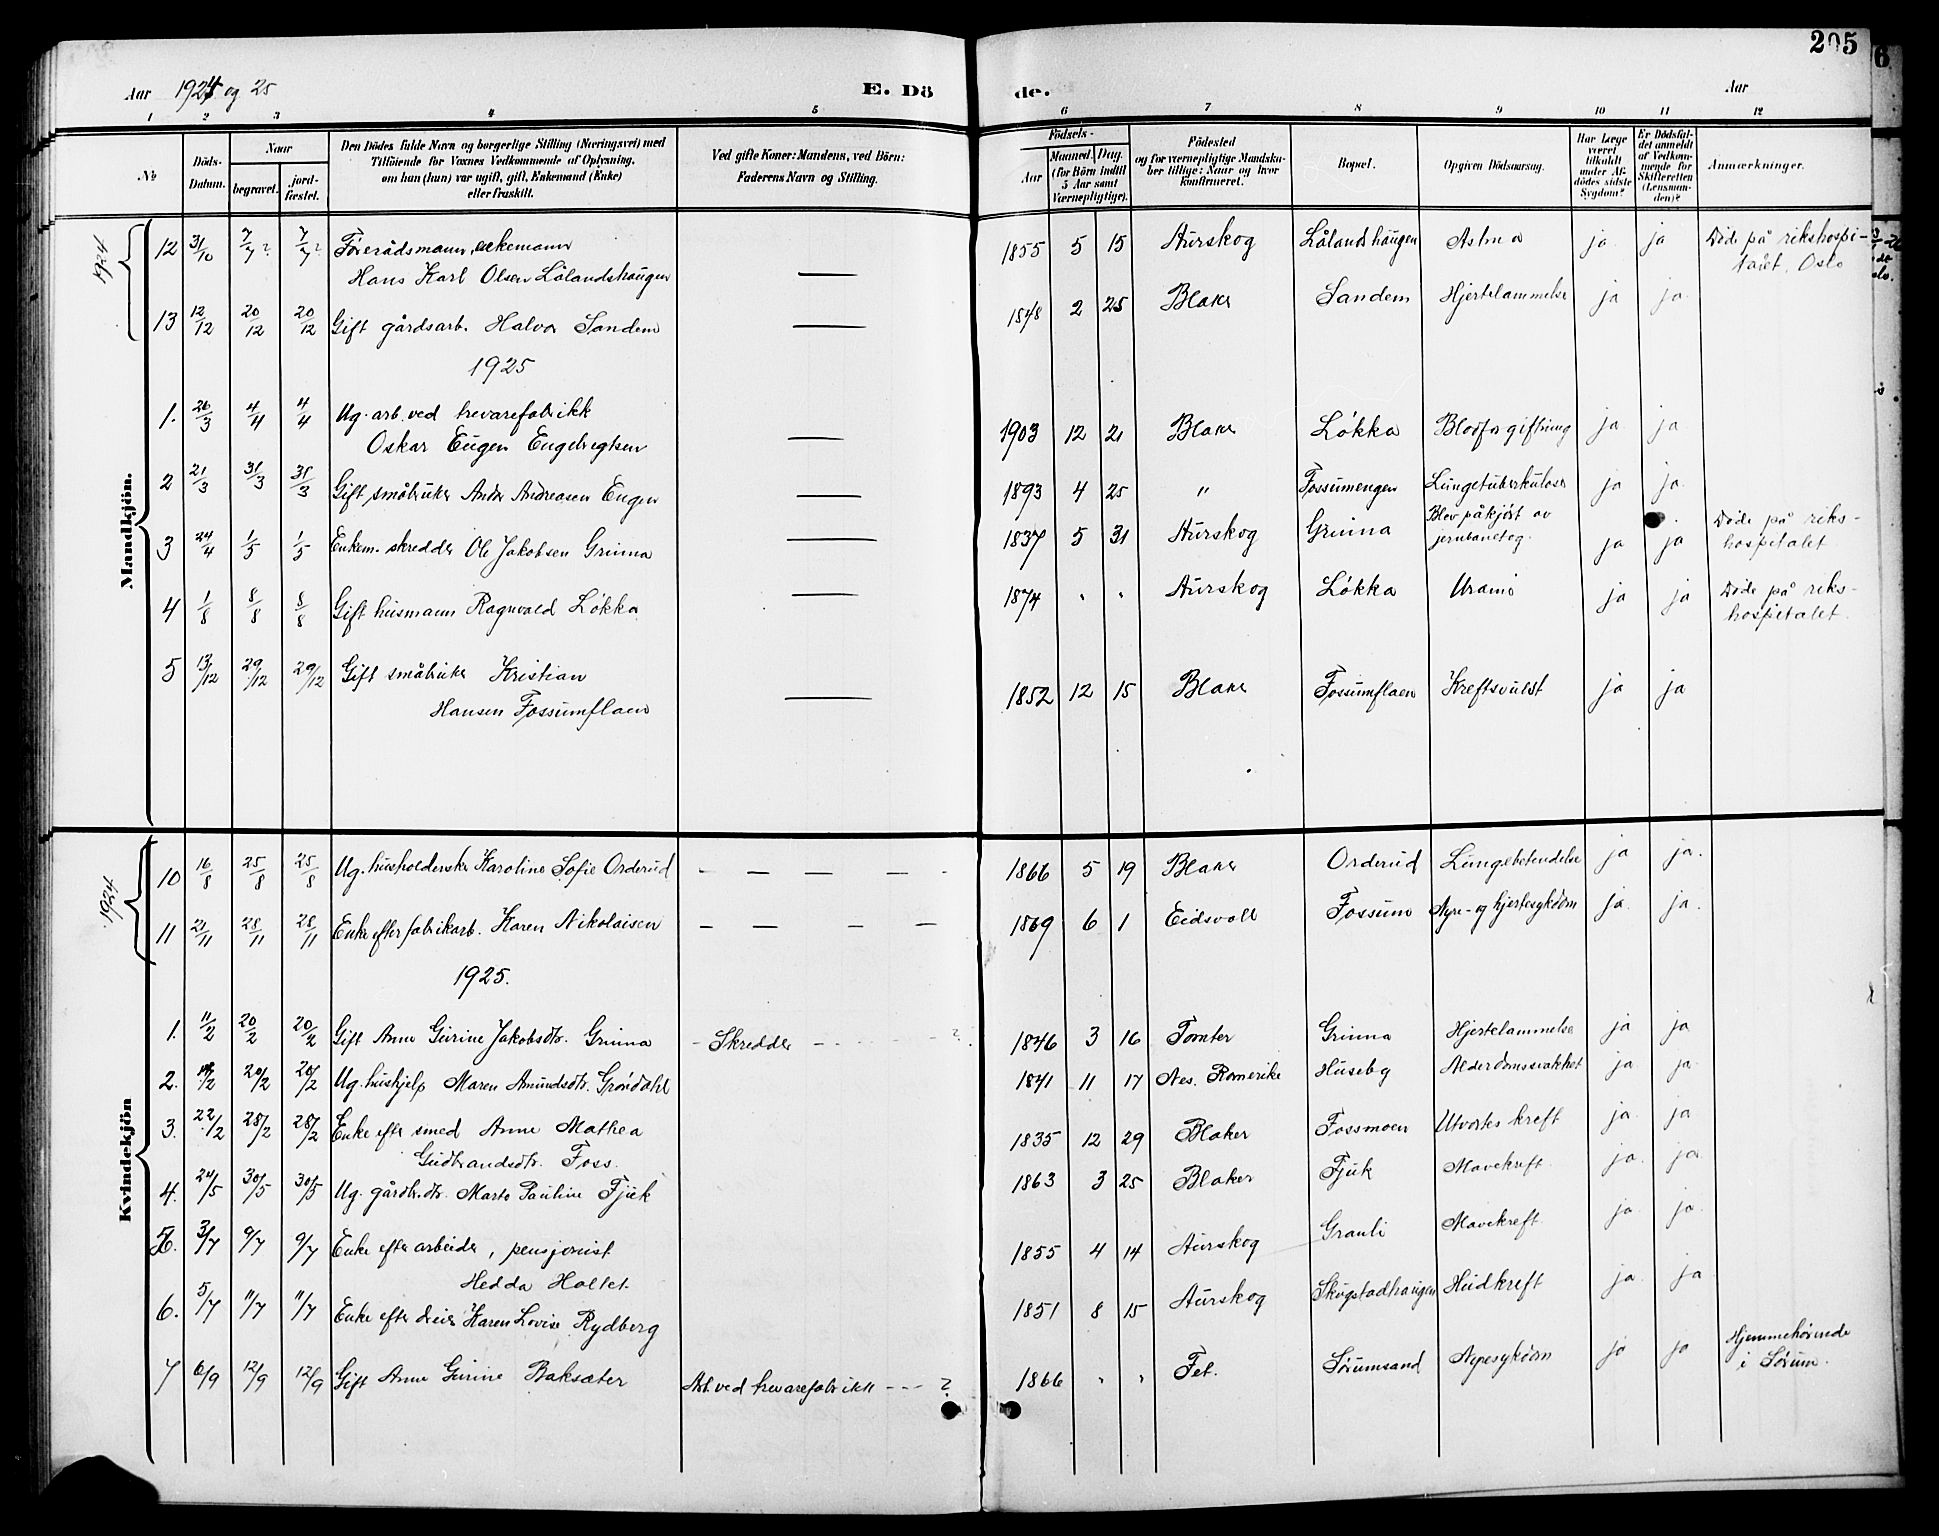 205
6
Aar 1924 og 25
E. Dö
de.
Aar
1 2 3 4 5 6 7 8 9 10 11 12
№
Döds-Datum.
Naar
begravet.
jord-fæstet.
Den Dödes fulde Navn og borgerlige Stilling (Næringsvei) med
Tilföiende for Voxnes Vedkommende af Oplysning,
om han (hun) var ugift, gift, Enkemand (Enke)
eller fraskilt.
Ved gifte Koner: Mandens, ved Börn:
Faderens Navn og Stilling.
Födsels-
Aar
Maaned. Dag.
(for Börn indtil
5 Aar samt
Værnepligtige).
Födested
og for værnepligtige Mandska-
ber tillige: Naar og hvor
konfirmeret.
Bopæl.
Opgiven Dödsaarsag.
Har Læge
været
tilkaldt
under Af-
dödes sidste
Sygdom?
Er Dödsfal-
det anmeldt
af Vedkom-
mende for
Skifteretten
(Lensman-
den)?
Anmærkninger.
Mandkjön.
1924
12 31/10 7/7? 7/7? Föderådsmann, enkemann
Hans Karl Olsen Lålandshaugen — 1855 5 15 Aurskog Lålandshaugen Astma ja ja Döde på rikshospi-
talet, Oslo
13 12/12 20/12 20/12 Gift gårdsarb. Halvor Sandem — 1848 2 25 Blaker Sandem Hjertelammelse ja ja
1925
1. 26/3 4/4 4/4 Ug. arb. ved trevarefabrikk
Oskar Eugen Engebregtsen — 1903 12 21 Blaker Løkka Blodforgiftning ja ja
2 21/3 31/3 31/3 Gift småbruker Andr Andreasen Engen — 1893 4 25 " Fossumengen Lungetuberkulose ja ja
3 24/4 1/5 1/5 Enkem. skredder Ole Jakobsen Grinna — 1837 5 31 Aurskog Grinna Blev påkjört av
jernbanetog. ja ja Döde på riks-
hospitalet
4 1/8 8/8 8/8 Gift husmann Ragnvald Løkka — 1874 " " Aurskog Løkka Uræmi ja ja Döde på riks-
hospitalet.
5 13/12 29/12 29/12 Gift småbruker Kristian
Hansen Fossumflaen — 1852 12 15 Blaker Fossumflaen Kreftsvulst ja ja
Kvindekjön
1924
10 16/8 25/8 25/8 Ug. husholderske Karoline Sofie Orderud — — — — 1866 5 19 Blaker Orderud Lungebetendelse ja ja.
11 21/11 28/11 28/11 Enke efter fabrikarb. Karen Nikolaisen — — — — 1869 6 1 Eidsvoll Fossum Nyre- og hjertesykdom ja. ja.
1925.
1. 11/2 20/2 20/2 Gift Anne Gurine Jakobsdtr. Grinna - Skredder - - - ? 1846 3 16 Tomter Grinna Hjertelammelse ja ja
2. 20/2 20/2 Ug. hushjelp Maren Amundsdtr. Gröndahl 1841 11 17 Nes. Romerike Huseby Alderdomssvakhet ja ja.
3. 22/2 28/2 28/2 Enke efter smed Anne Mathea
Gudbrandsdtr. Foss. 1835 12 29 Blaker Fossmoen Utvortes kreft ja ja
4. 24/5 30/5 30/5 Ug. gårdbr.dtr. Marte Pauline Fjuk 1863 3 25 Blaker Fjuk Mavekreft. ja ja
5. 3/7 9/7 9/7 Enke efter arbeider, pensjonist
Hedda Haltet. 1855 4 14 Aurskog Grauli Mavekreft ja ja.
6. 5/7 11/7 11/7 Enke efter Karen Lovise Rydberg 1851 8 15 Aurskog Skogstadhaugen Hudkreft ja ja
7 6/9 12/9 12/9 Gift Anne Gurine Baksæter Arb. ved trevarefabrikk - - - ? 1866 " " Fet. Sörumsand Nyresykdom ja ja Hjemmehörende
i Sörum.